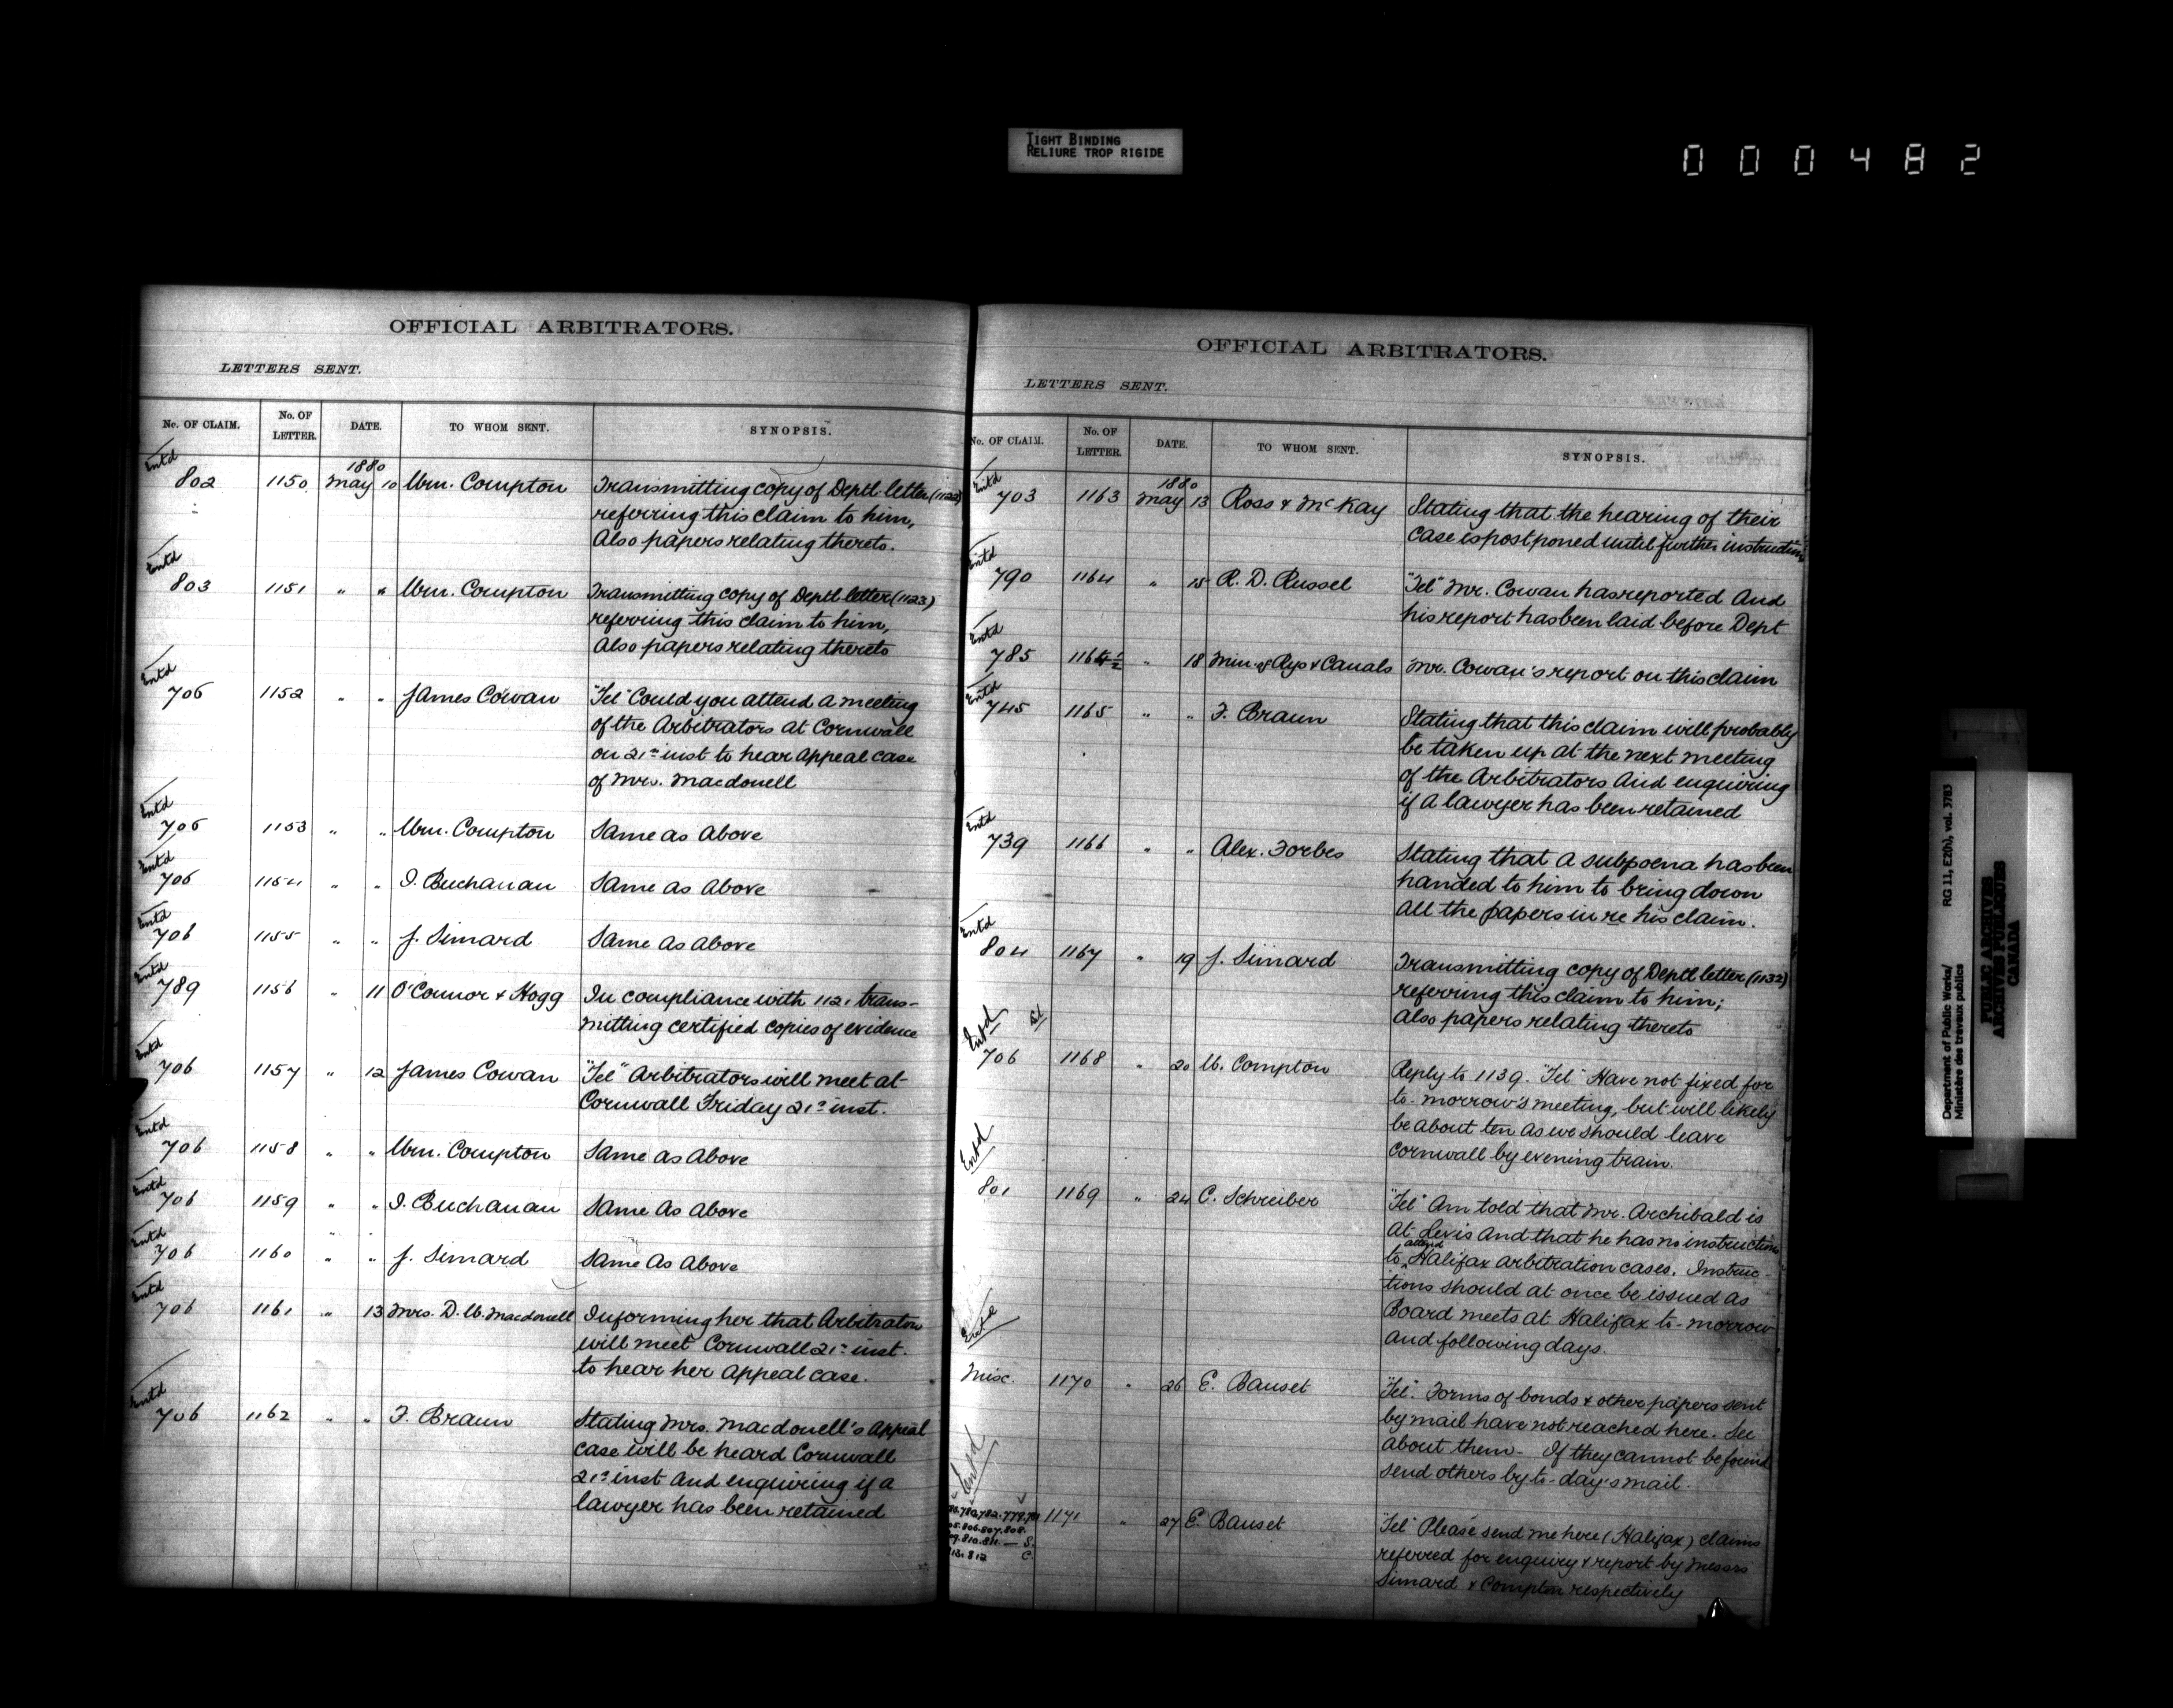 TIGHT BINDING
RELIURE TROP RIGIDE
000482
OFFICIAL ARBITRATORS.
LETTERS SENT.
No. OF CLAIM. No. OF LETTER. DATE. TO WHOM SENT. SYNOPSIS.
Entd
1880
802 1150 May 10 Wm. Compton Transmitting copy of Deptl. letter (1122)
referring this claim to him,
Also papers relating thereto.
Entd
803 1151 " " Wm. Compton Transmitting copy of Deptl letter (1123)
referring this claim to him,
Also papers relating thereto
Entd
706 1152 " " James Cowan "Tel" Could you attend a meeting
of the Arbitrators at Cornwall
on 21st inst to hear appeal case
of Mrs. Macdonell
Entd
706 1153 " " Wm. Compton Same as above
Entd
706 1154 " " I. Buchanan Same as above
Entd
706 1155 " " J. Simard Same as above
Entd
789 1156 " 11 O'Connor & Hogg In compliance with 1121 trans-
mitting certified copies of evidence
Entd
706 1157 " 12 James Cowan "Tel" Arbitrators will meet at
Cornwall Friday 21st inst.
Entd
706 1158 " " Wm. Compton Same as above
Entd
706 1159 " " I. Buchanan Same as above
Entd
706 1160 " " J. Simard Same as above
Entd
706 1161 " 13 Mrs. D. W. Macdonell Informing her that Arbitrators
will meet Cornwall 21st inst.
to hear her appeal case.
Entd
706 1162 " " F. Braun Stating Mrs. Macdonell's appeal
case will be heard Cornwall
21st inst and enquiring if a
lawyer has been retained
OFFICIAL ARBITRATORS.
LETTERS SENT.
No. OF CLAIM. No. OF LETTER. DATE. TO WHOM SENT. SYNOPSIS.
Entd
1880
703 1163 May 13 Ross & McKay Stating that the hearing of their
case is postponed until further instructions
Entd
790 1164 " 15 R. D. Russel "Tel" Mr. Cowan has reported and
his report has been laid before Dept
Entd
785 1164½ " 18 Min. of Rys & Canals Mr. Cowan's report on this claim
Entd
745 1165 " " F. Braun Stating that this claim will probably
be taken up at the next meeting
of the Arbitrators and enquiring
if a lawyer has been retained
Entd
739 1166 " " Alex. Forbes Stating that a subpoena has been
handed to him to bring down
all the papers in re his claim.
Entd
804 1167 " 19 J. Simard Transmitting copy of Deptl. letter (1132)
referring this claim to him;
also papers relating thereto
Entd
706 1168 " 20 W. Compton Reply to 1139. "Tel" Have not fixed for
to-morrow's meeting, but will likely
be about ten as we should leave
Cornwall by evening train.
Entd
801 1169 " 24 C. Schreiber "Tel" Am told that Mr. Archibald is
at Levis and that he has no instructions
to attend Halifax arbitration cases. Instruc-
tions should at once be issued as
Board meets at Halifax to-morrow
and following days.
Misc. 1170 " 26 E. Bauset "Tel". Forms of bonds & other papers sent
by mail have not reached here. See
about them - If they cannot be found
send others by to-day's mail.
Entd
780. 782. 779.
806. 807. 808.
810. 811. — S.
812 C.
1171 " 27 E. Bauset "Tel" Please send me here (Halifax) claims
referred for enquiry & report by Messrs
Simard & Compton respectively
Department of Public Works/ RG 11, E2(h), vol. 3783
Ministère des travaux publics
PUBLIC ARCHIVES
ARCHIVES PUBLIQUES
CANADA